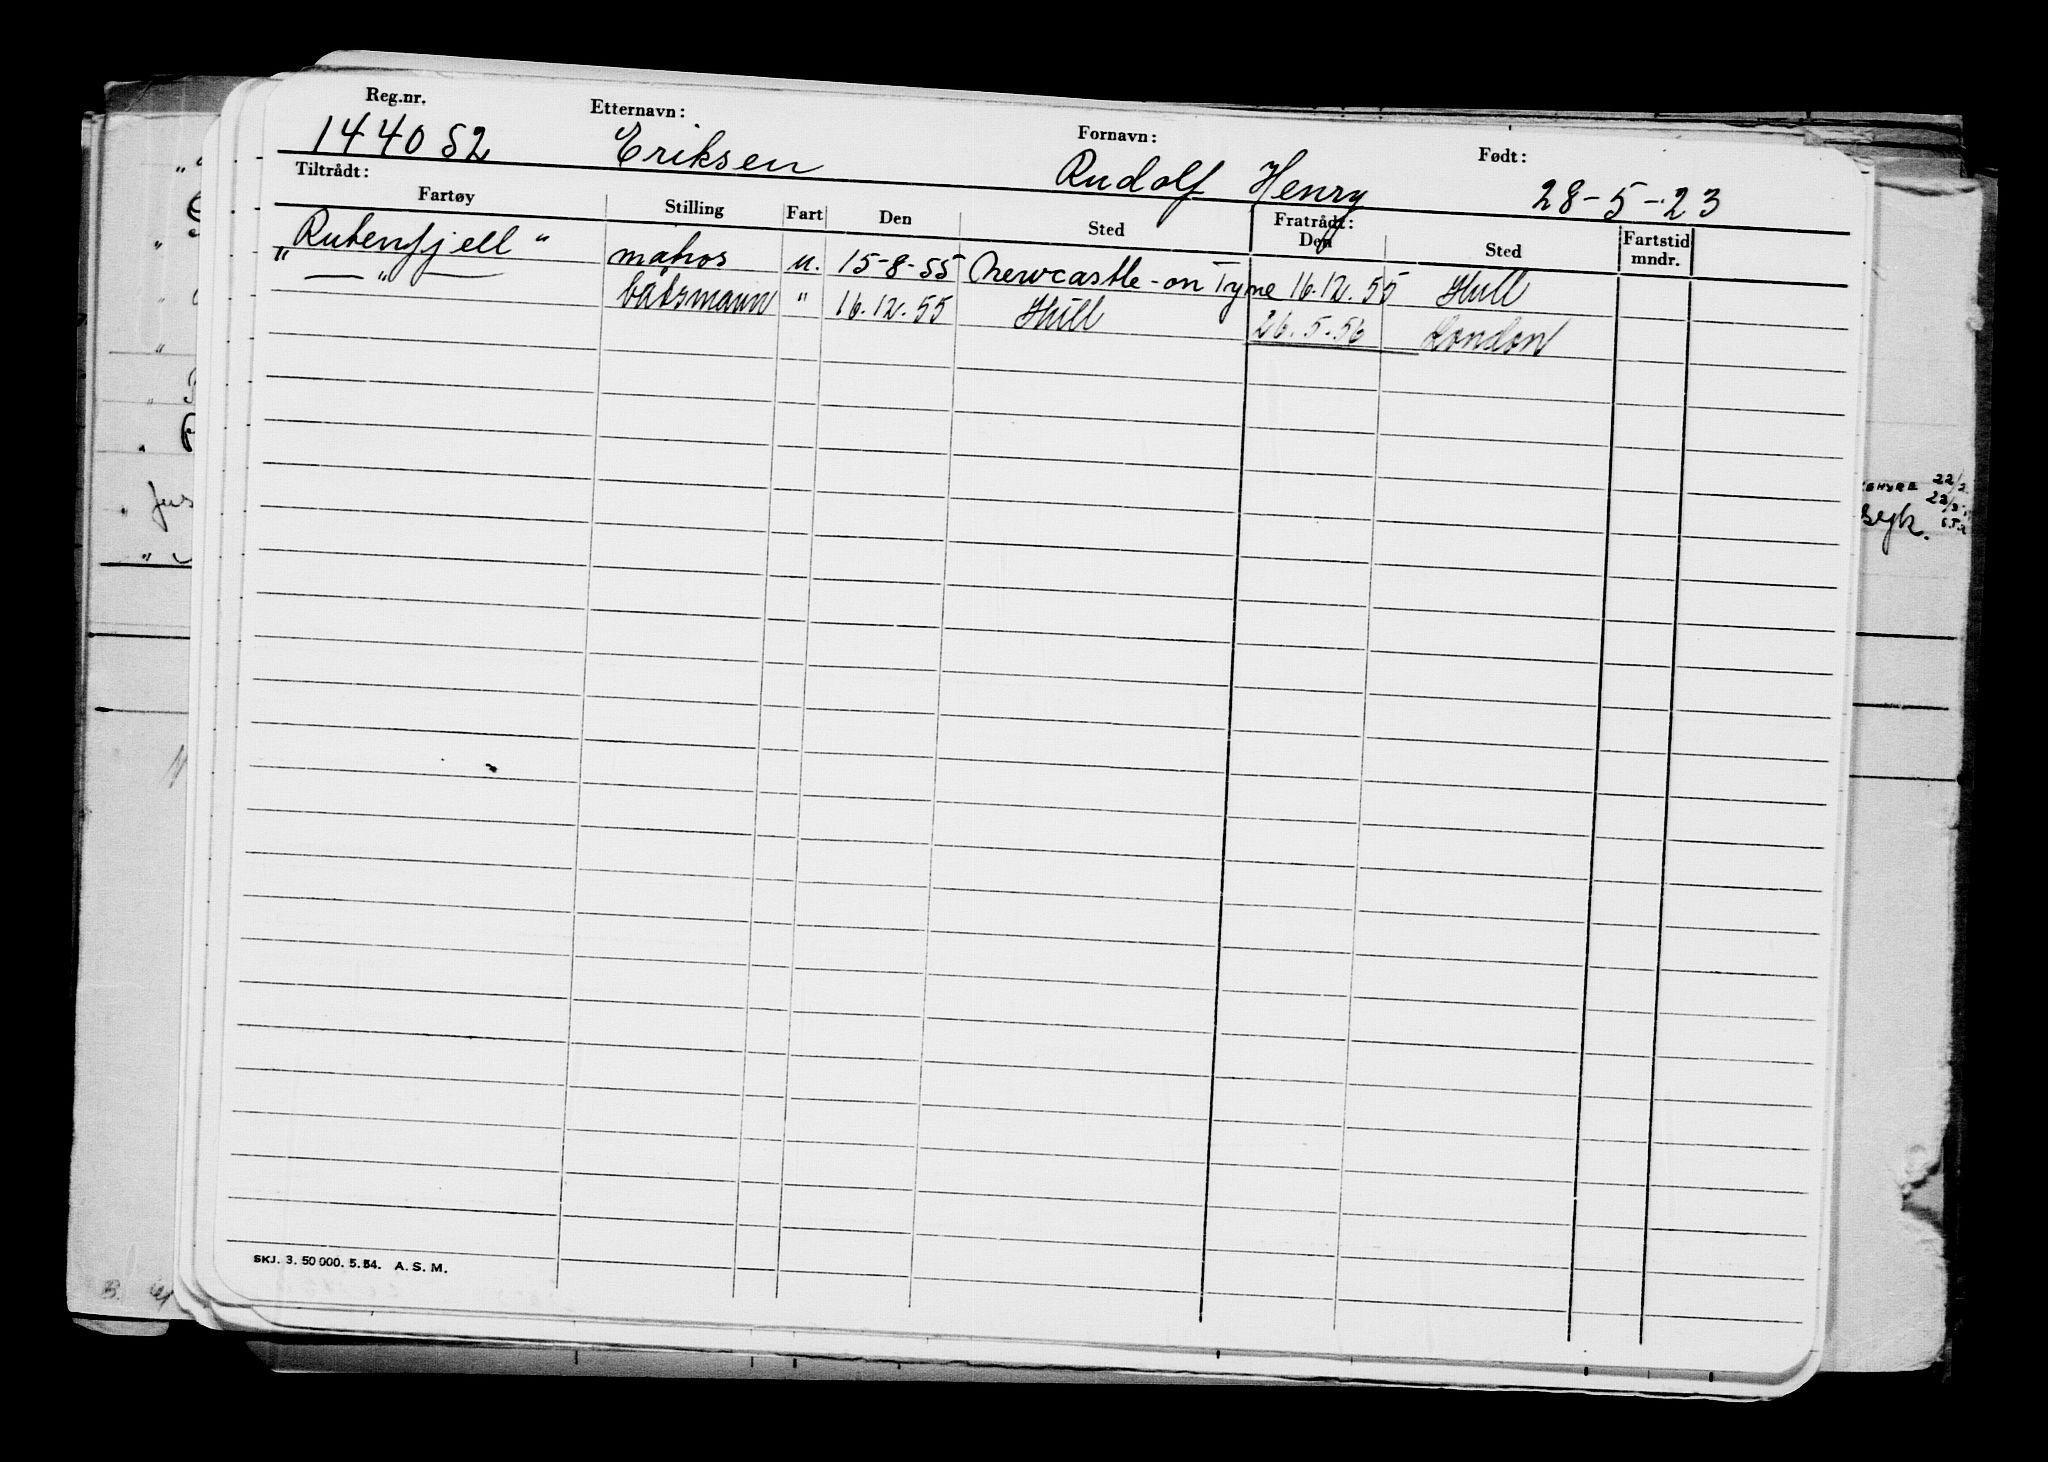 Reg.nr. Etternavn: Fornavn: Født:
144052 Eriksen Rudolf Henry 28-5-23
Tiltrådt: Fratrådt:
Fartøy Stilling Fart Den Sted Den Sted Fartstid mndr.
"Rutenfjell" matros u. 15-8-55 Newcastle-on Tyne 16.12.55 Hull
— " — båtsmann " 16.12.55 Hull 26.5.56 London
22/2
Jus
SKJ. 3. 50 000. 5. 54. A. S. M.